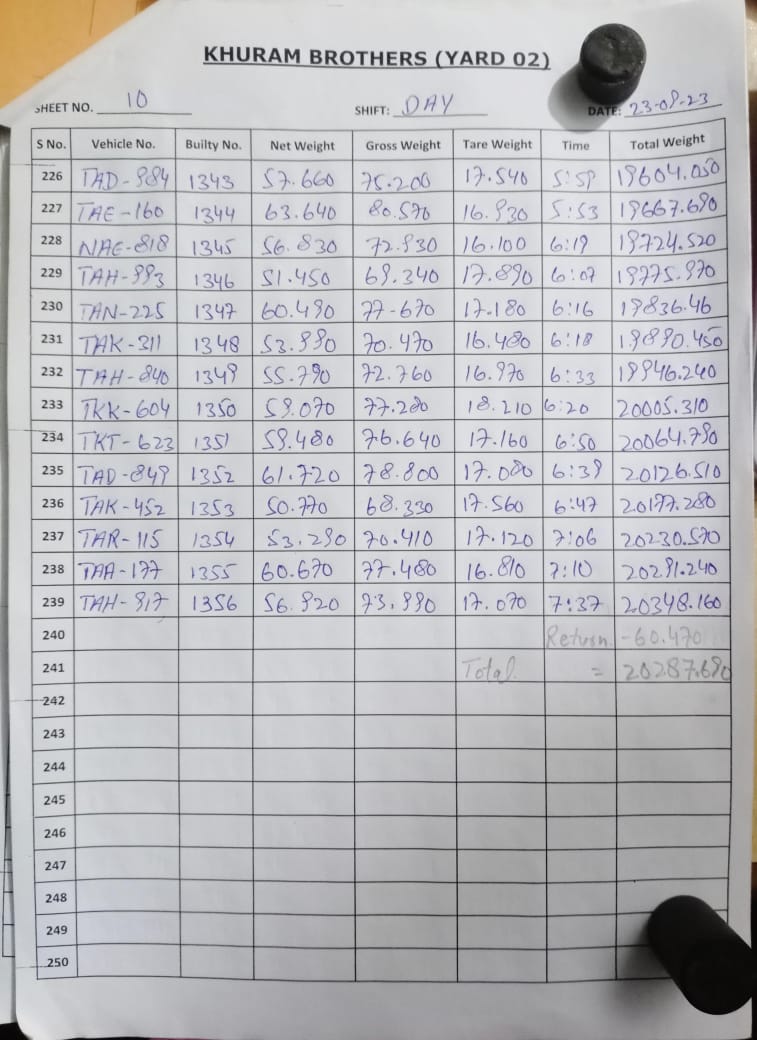 KHURAM BROTHERS (YARD 02)
SHEET NO. 10 SHIFT: DAY DATE: 23-09-23
S No. Vehicle No. Builty No. Net Weight Gross Weight Tare Weight Time Total Weight
226 TAD-984 1343 57.660 75.200 17.540 5:59 19604.050
227 TAE-160 1344 63.640 80.570 16.930 5:53 19667.690
228 NAE-818 1345 56.830 72.930 16.100 6:19 19724.520
229 TAH-993 1346 51.450 69.340 17.890 6:07 19775.970
230 TAN-225 1347 60.490 77-670 17.180 6:16 19836.46
231 TAK-311 1348 53.990 70.470 16.480 6:18 19890.450
232 TAH-840 1349 55.790 72.760 16.970 6:33 19946.240
233 TKK-604 1350 59.070 77.280 18.210 6:20 20005.310
234 TKT-623 1351 59.480 76.640 17.160 6:50 20064.790
235 TAD-849 1352 61.720 78.800 17.080 6:39 20126.510
236 TAK-452 1353 50.770 68.330 17.560 6:47 20177.280
237 TAR-115 1354 53.290 70.410 17.120 7:06 20230.570
238 TAA-177 1355 60.670 77.480 16.810 7:10 20291.240
239 TAH-917 1356 56.920 73.990 17.070 7:37 20348.160
240 Return -60.470
241 Total = 20287.690
242
243
244
245
246
247
248
249
250